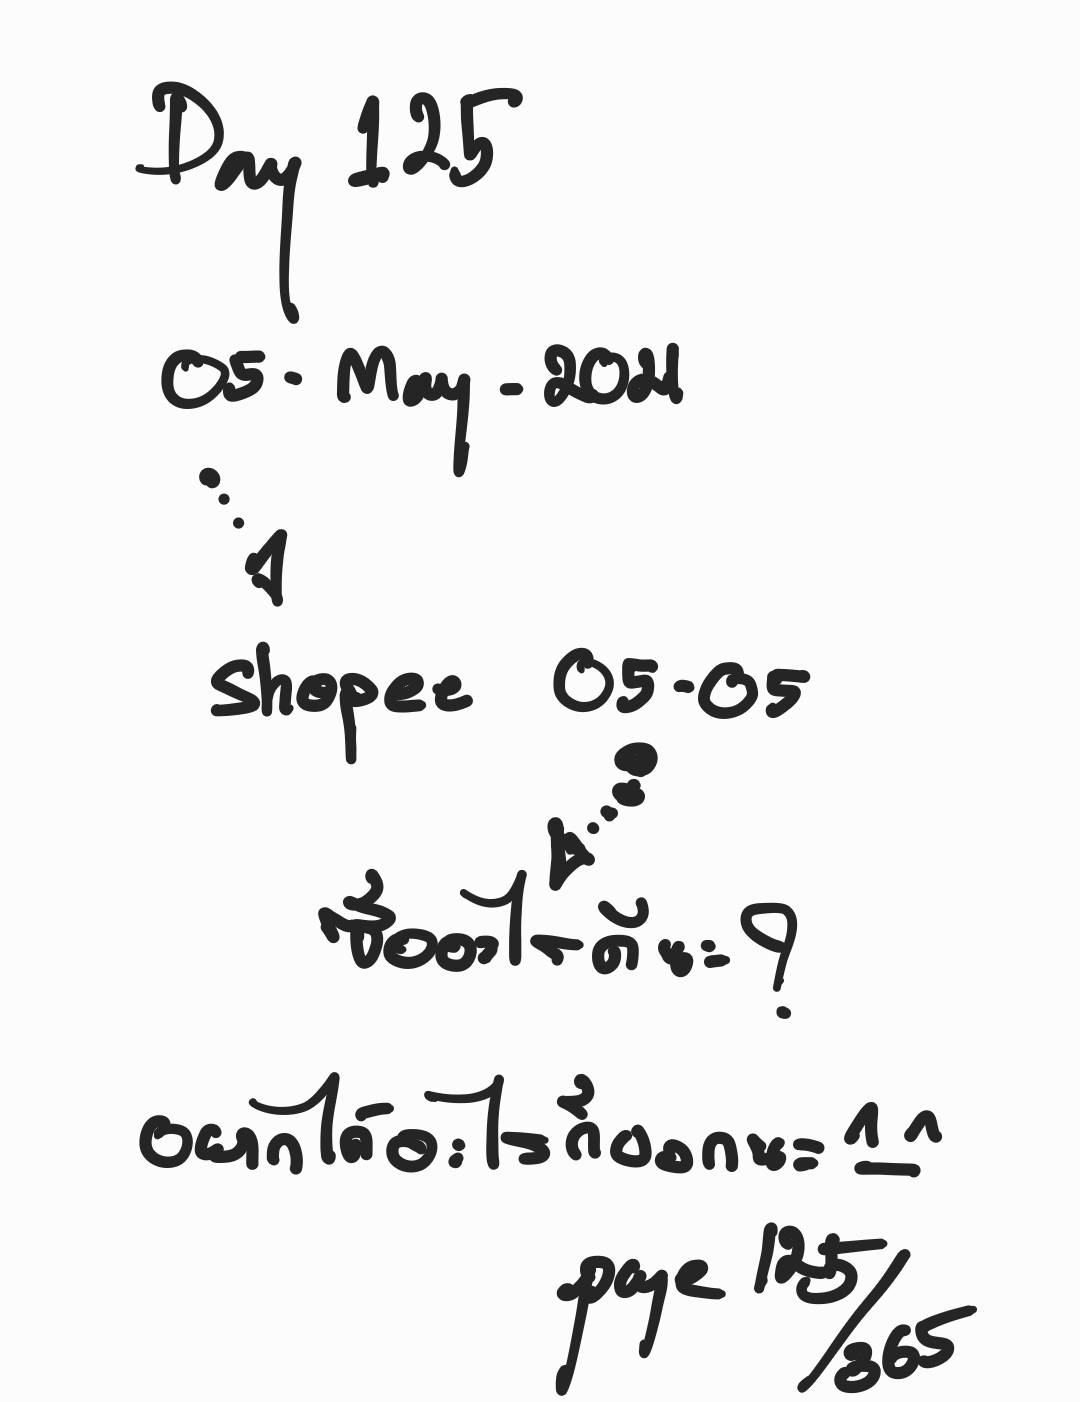 Day 125
05 - May - 2021
Shopee 05-05
ซื้ออะไรดีนะ?
อยากได้อะไรก็บอกนะ ^_^
page 125/365